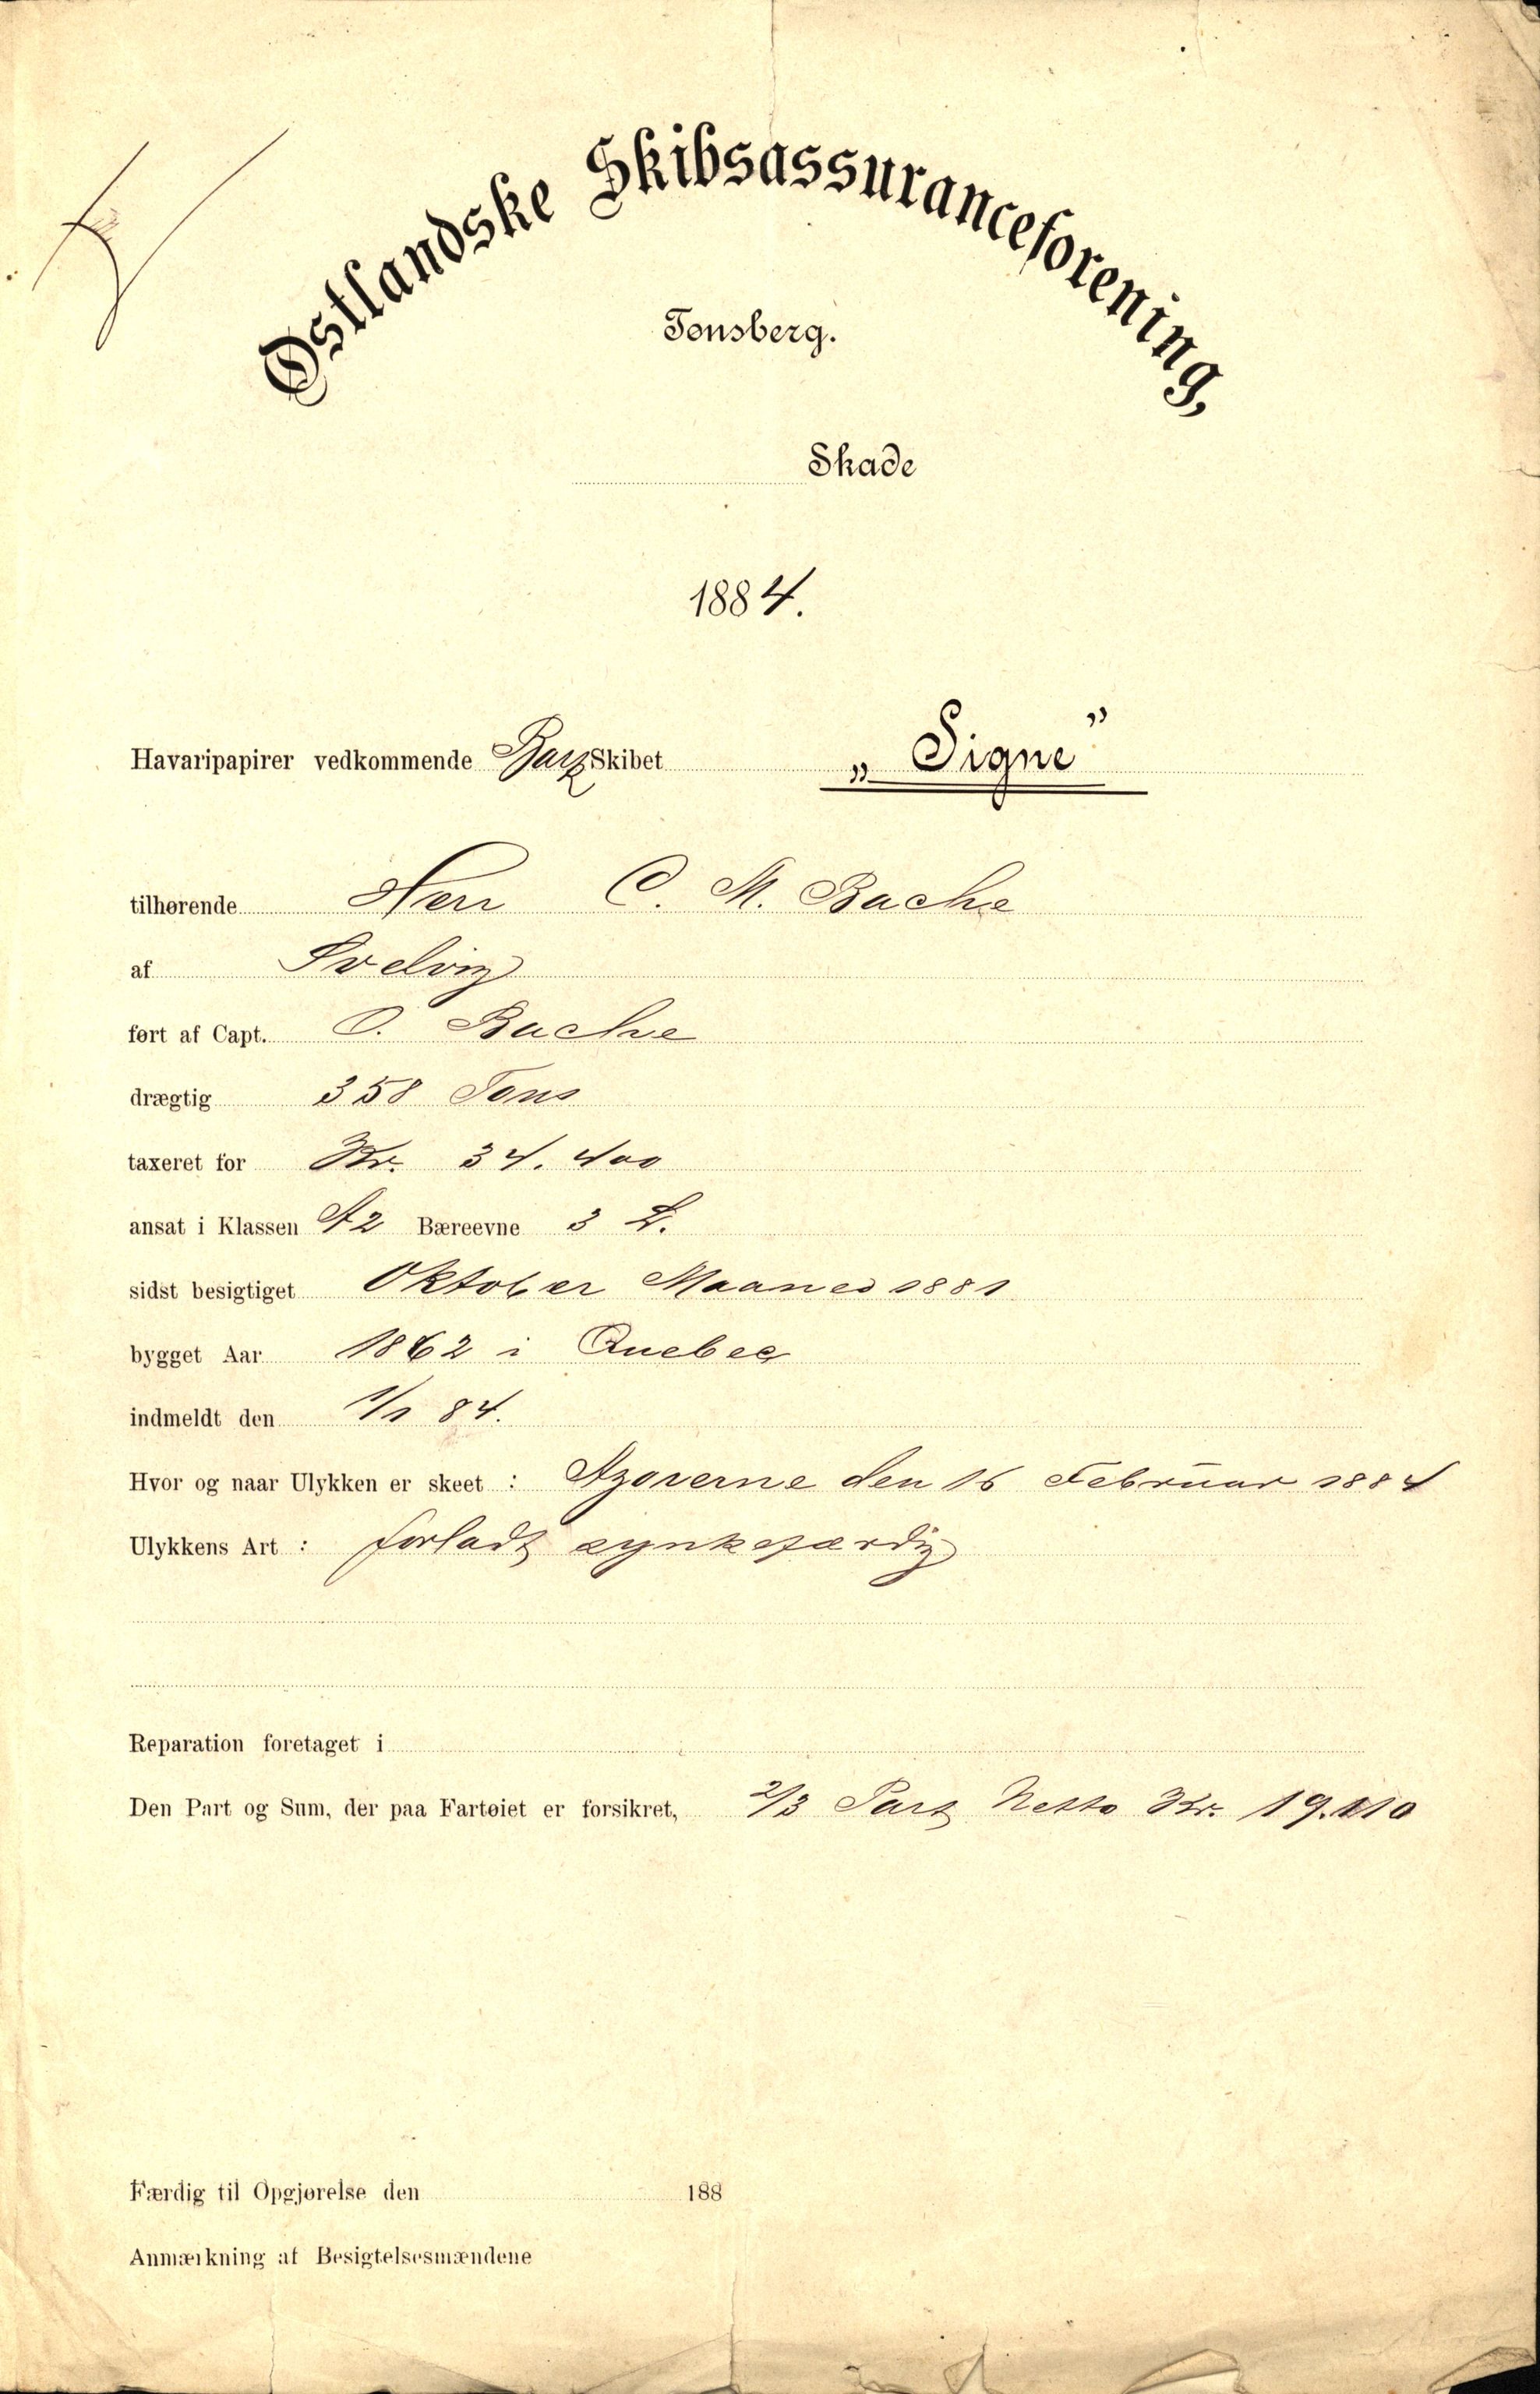 Østlandske Skibsassuranceforening,
Tønsberg.
Skade
1884.
Havaripapirer vedkommende Bark Skibet „Signe”
tilhørende Herr C. M. Bache
af Svelvig
ført af Capt. O. Bache
drægtig 358 Tons
taxeret for Kr. 34.400
ansat i Klassen A2 Bæreevne 3 L.
sidst besigtiget Oktober Maaned 1881
bygget Aar 1862 i Quebec
indmeldt den 1/1 84.
Hvor og naar Ulykken er skeet : Azorerne den 16 Februar 1884
Ulykkens Art : forladt synkefærdig
Reparation foretaget i
Den Part og Sum, der paa Fartøiet er forsikret, 2/3 Part Netto Kr.
Færdig til Opgjørelse den 188
Anmærkning af Besigtelsesmændene